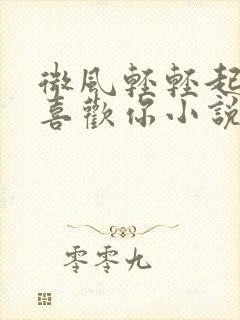 微風輕輕起
喜歡你小說
零零九